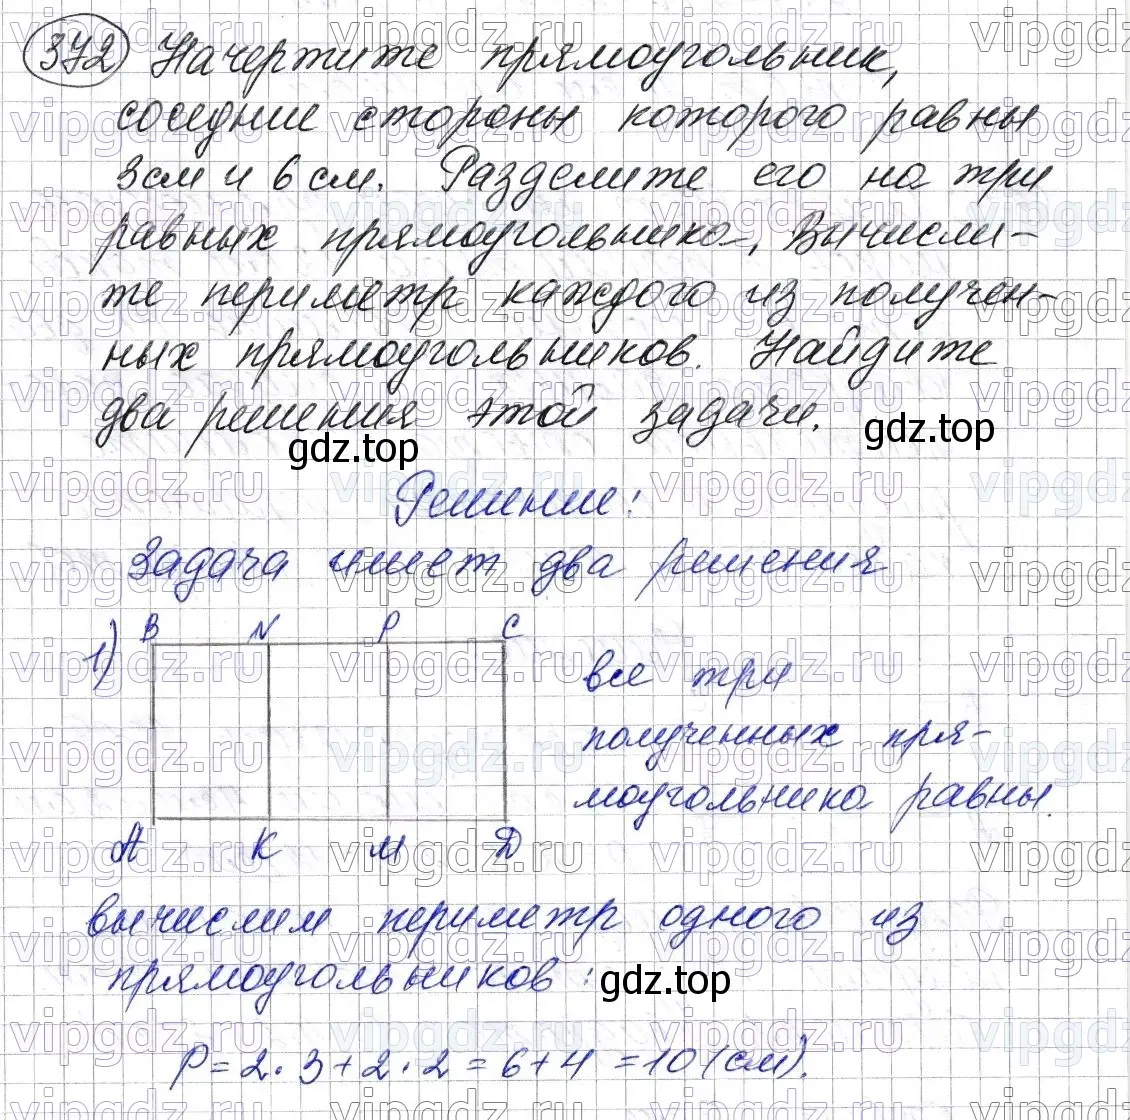 372 Начертите прямоугольник,
соседние стороны которого равны
3 см и 6 см. Разделите его на три
равных прямоугольника. Вычисли-
те периметр каждого из получен-
ных прямоугольников. Найдите
два решения этой задачи.
gdz.top gdz.top
Решение:
Задача имеет два решения
1) B N P C
все три
полученных пря-
моугольника равны.
A K M D
вычислим периметр одного из
прямоугольников:
gdz.top
P = 2 · 3 + 2 · 2 = 6 + 4 = 10 (см).